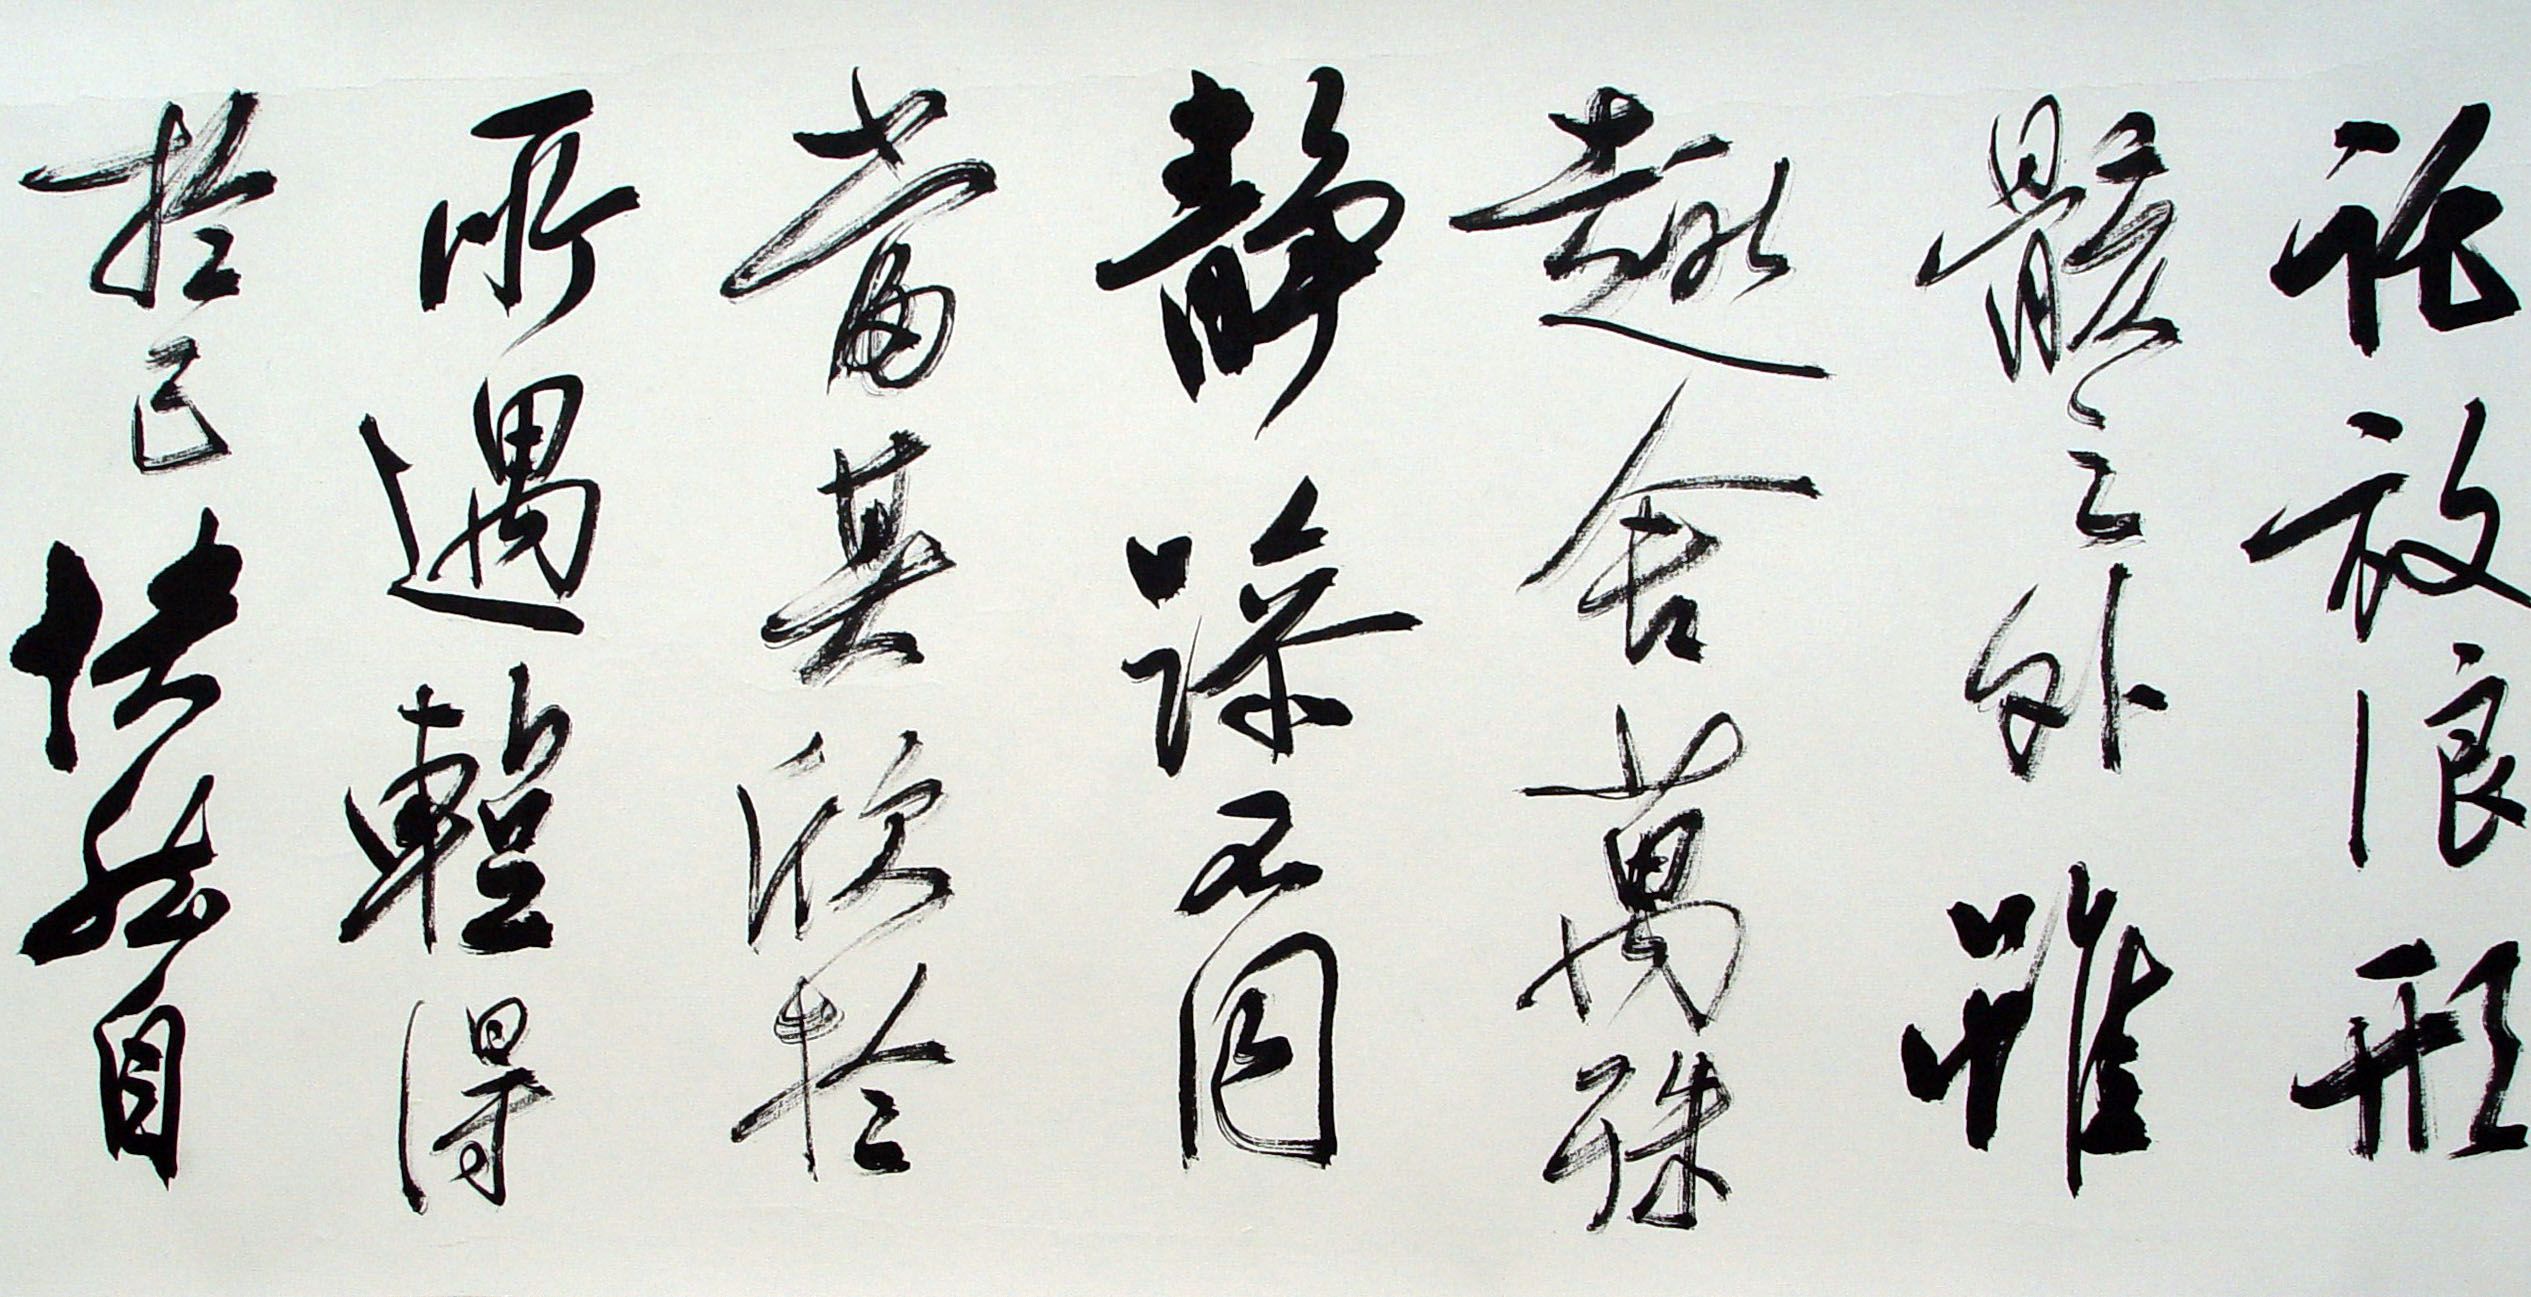 託放浪形
骸之外雖
趣舍萬殊
靜躁不同
當其欣於
所遇輕得
於己怏然自